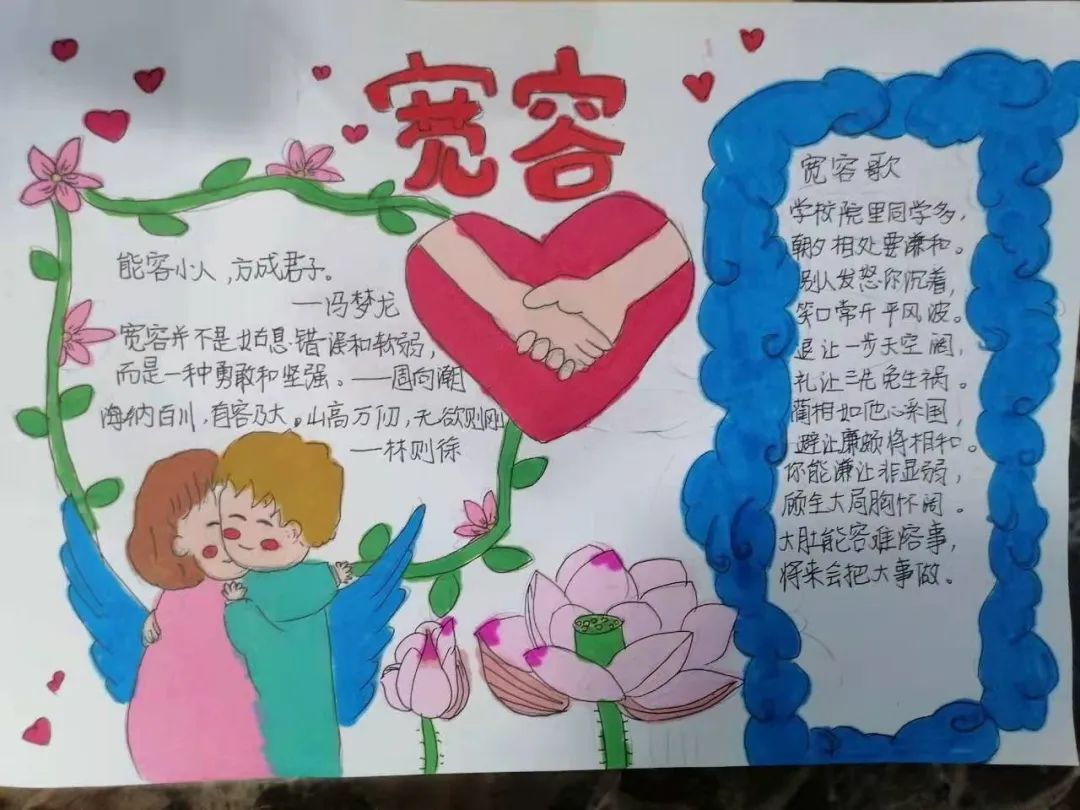 宽容
能容小人，方成君子。
——冯梦龙
宽容并不是姑息错误和软弱，
而是一种勇敢和坚强。——周向潮
海纳百川，有容乃大。山高万仞，无欲则刚
——林则徐
宽容歌
学校院里同学多，
朝夕相处要谦和。
别人发怒你沉着，
笑口常开平风波。
退让一步天空阔，
礼让三先免生祸。
蔺相如他心系国，
避让廉颇将相和。
你能谦让非显弱，
顾全大局胸怀阔。
大肚能容难溶事，
将来会把大事做。